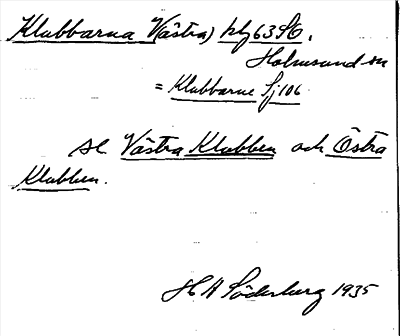 Klubbarna V(ästra) klg 63 S6.
Holmsund sn
= Klubbarne Sj 106
se Västra Klubben och Östra
Klubben.
H A Söderberg 1935